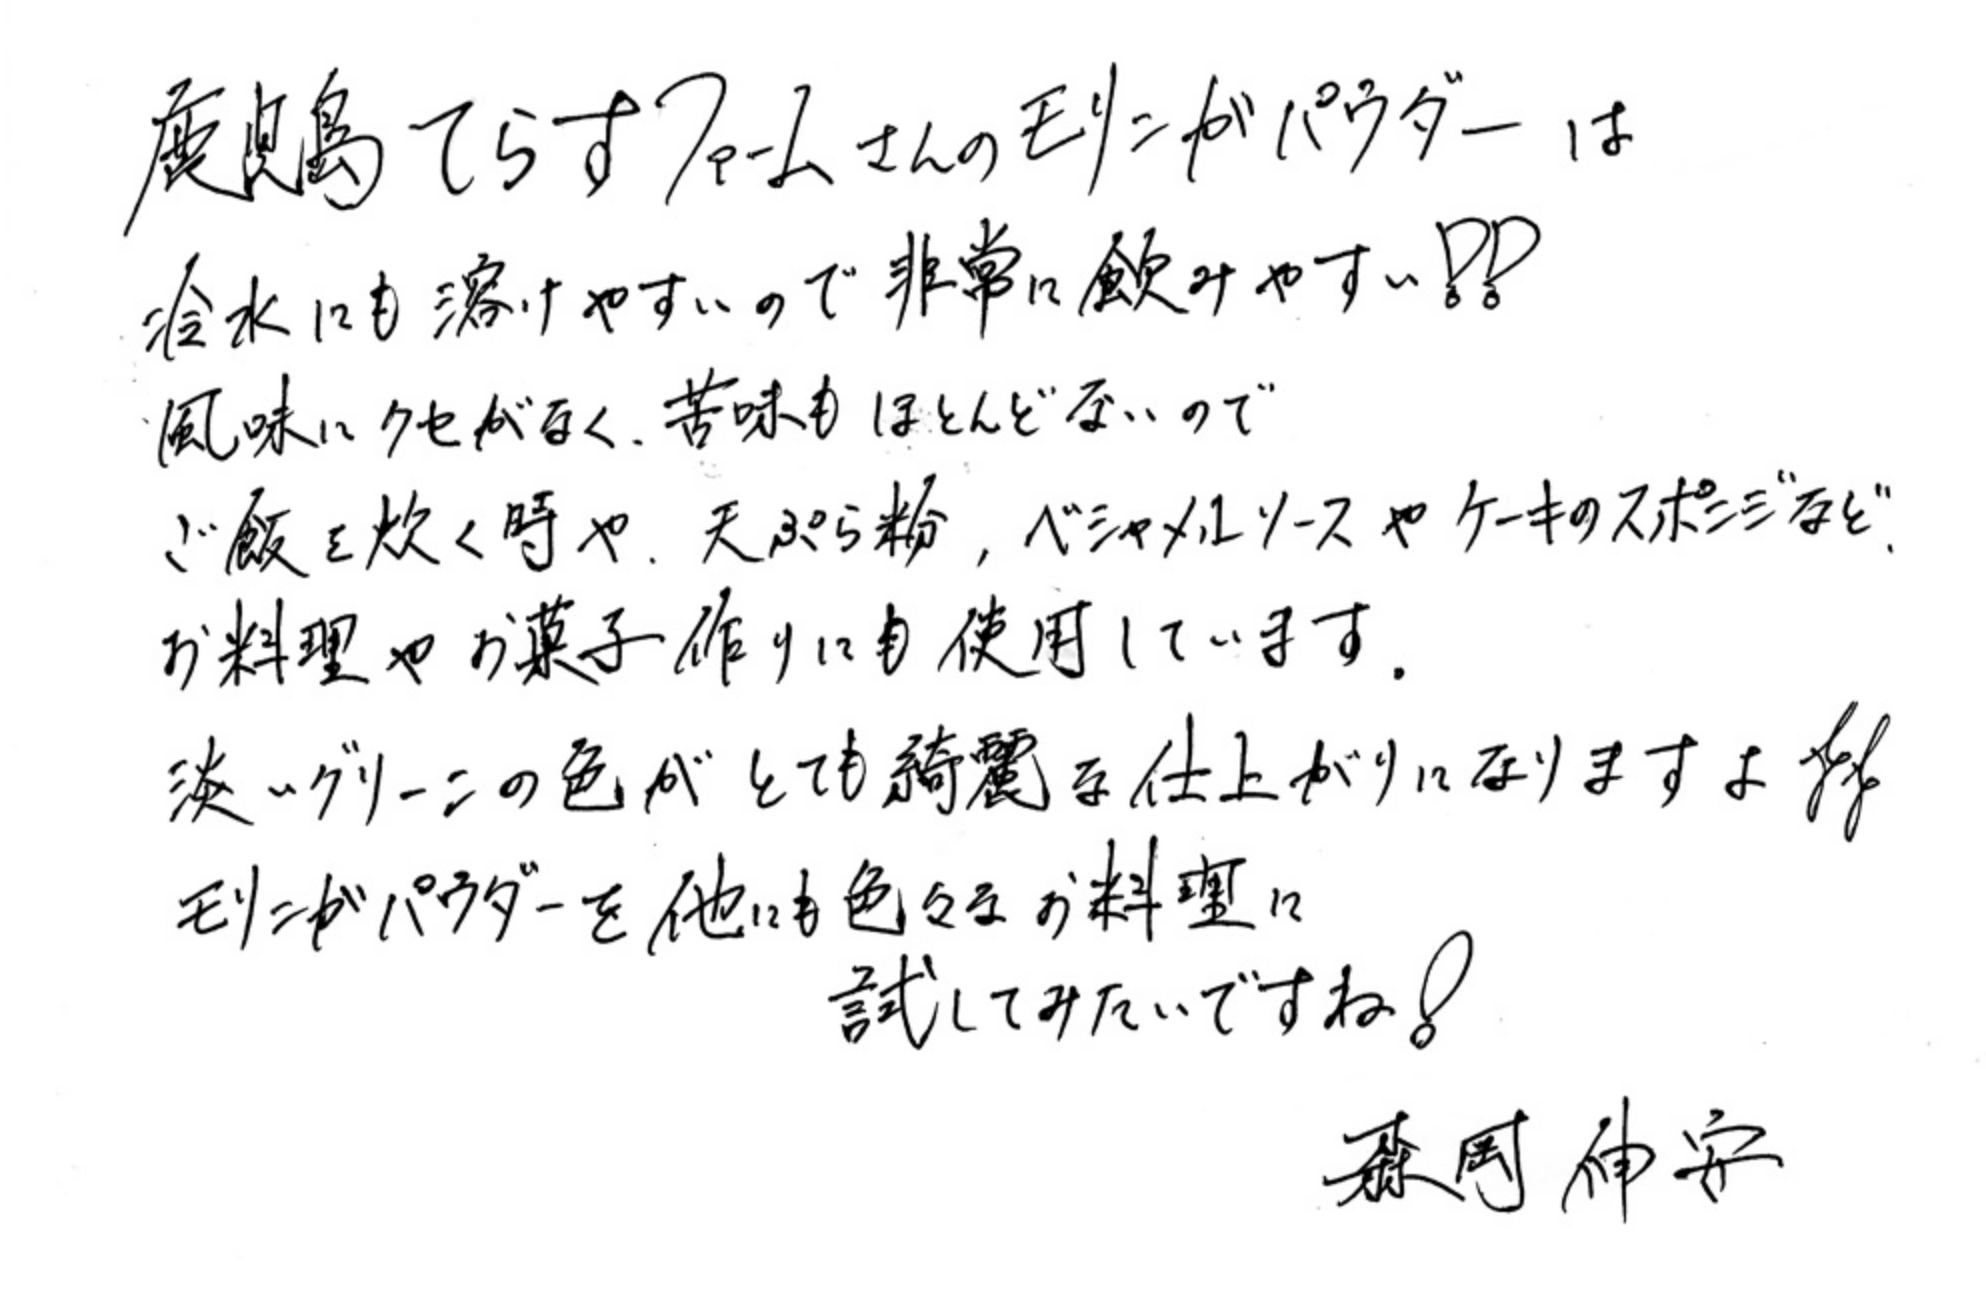 鹿児島てらすファームさんのモリンガパウダーは
冷水にも溶けやすいので非常に飲みやすい!!
風味にクセがなく、苦味もほとんどないので
ご飯を炊く時や、天ぷら粉,ベシャメルソースやケーキのスポンジなど、
お料理やお菓子作りにも使用しています.
淡いグリーンの色がとても綺麗な仕上がりになりますよ♪♪
モリンガパウダーを他にも色々なお料理に
試してみたいですね!
森岡伸安